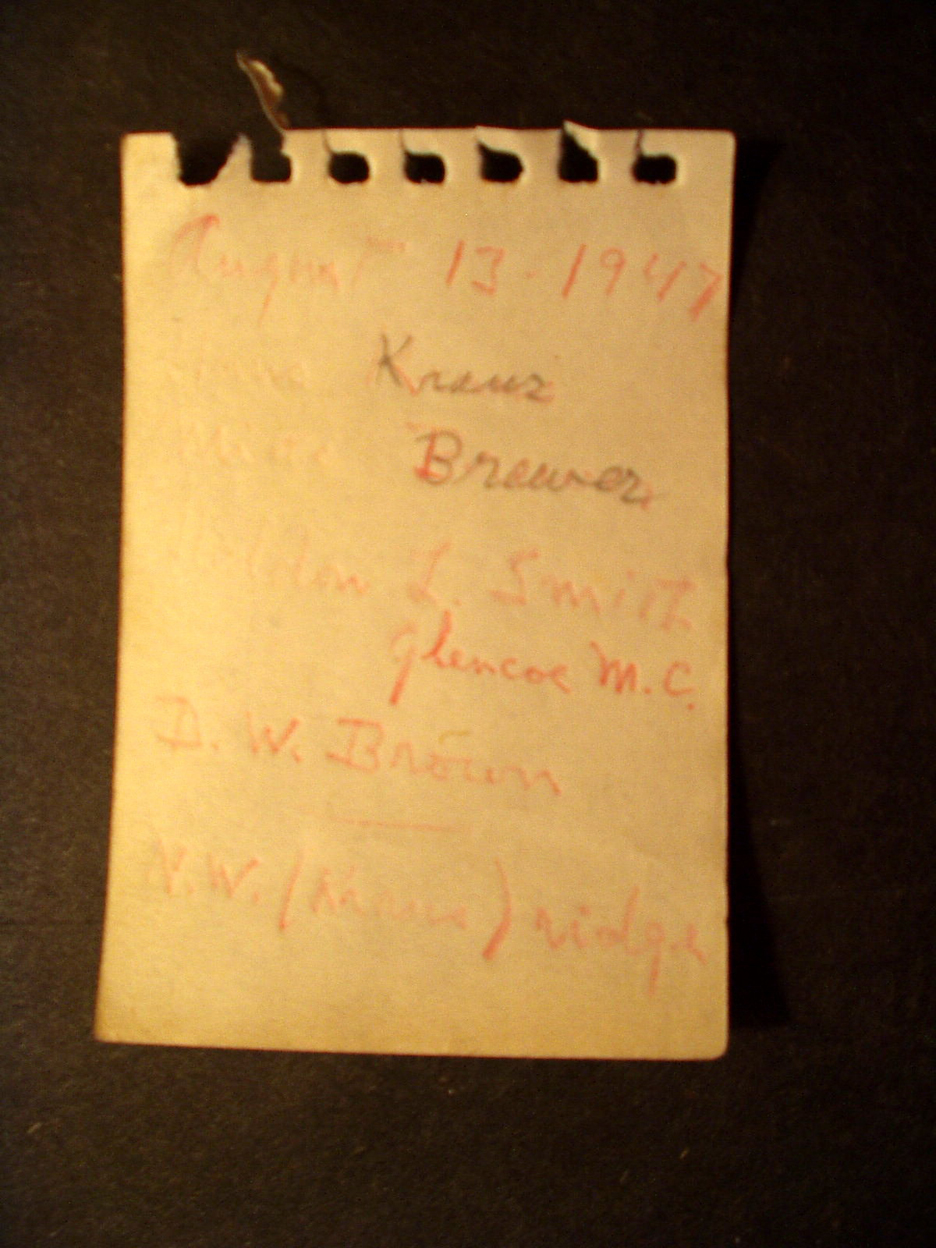 August 13-1947
Kraus
Brewer
L. Smith
Glencoe M.C.
D. W. Brown
N.W. (Kraus) ridge